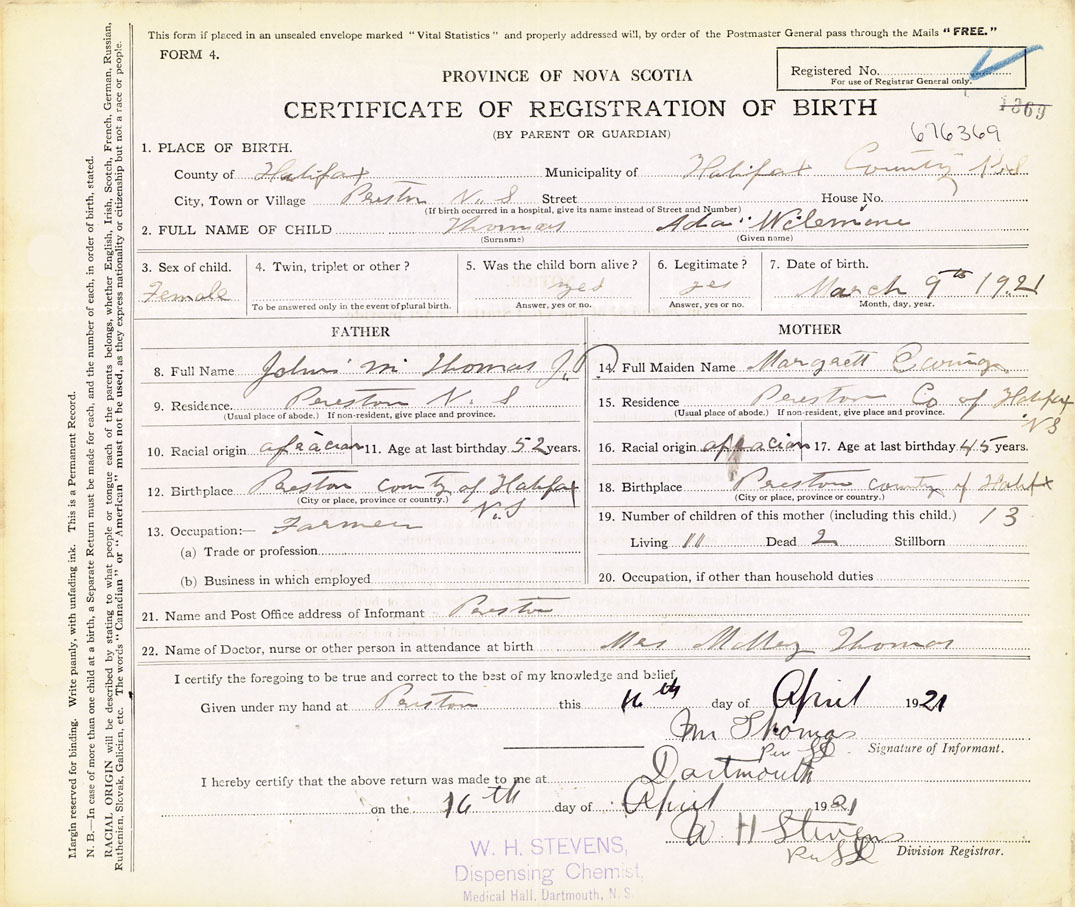 This form if placed in an unsealed envelope marked "Vital Statistics" and properly addressed will, by order of the Postmaster General pass through the Mails "FREE."
FORM 4.
PROVINCE OF NOVA SCOTIA
Registered No.
For use of Registrar General only.
CERTIFICATE OF REGISTRATION OF BIRTH
1869
(BY PARENT OR GUARDIAN)
676369
1. PLACE OF BIRTH.
County of Halifax Municipality of Halifax County
City, Town or Village Preston N. S Street House No.
(If birth occurred in a hospital, give its name instead of Street and Number)
2. FULL NAME OF CHILD Thomas Ada Wilemine
(Surname) (Given name)
3. Sex of child. Female
4. Twin, triplet or other?
To be answered only in the event of plural birth.
5. Was the child born alive? yes
Answer, yes or no.
6. Legitimate? yes
Answer, yes or no.
7. Date of birth. March 9th 1921
Month, day, year.
FATHER
8. Full Name John M Thomas
9. Residence. Pereston N. S
(Usual place of abode.) If non-resident, give place and province.
10. Racial origin 11. Age at last birthday 52 years.
12. Birthplace Preston county of Halifax
(City or place, province or country.) N.S
13. Occupation:— Farmer
(a) Trade or profession
(b) Business in which employed
MOTHER
14. Full Maiden Name Margrett
15. Residence Pereston Co of Halifax
(Usual place of abode.) If non-resident, give place and province. NS
16. Racial origin 17. Age at last birthday 45 years.
18. Birthplace Pereston county of Halifax
(City or place, province or country.)
19. Number of children of this mother (including this child.) 13
Living 11 Dead 2 Stillborn
20. Occupation, if other than household duties
21. Name and Post Office address of Informant Preston
22. Name of Doctor, nurse or other person in attendance at birth Mrs Thomas
I certify the foregoing to be true and correct to the best of my knowledge and belief,
Given under my hand at Preston this 16th day of April 1921
Thomas
Signature of Informant.
I hereby certify that the above return was made to me at Dartmouth
on the 16th day of April 1921
W H Stevens
Division Registrar.
W. H. STEVENS,
Dispensing Chemist,
Medical Hall, Dartmouth, N. S.
Margin reserved for binding. Write plainly, with unfading ink. This is a Permanent Record.
N. B.—In case of more than one child at a birth, a Separate Return must be made for each, and the number of each, in order of birth, stated.
RACIAL ORIGIN will be described by stating to what people or tongue each of the parents belongs, whether English, Irish, Scotch, French, German, Russian,
Ruthenian, Slovak, Galician, etc. The words "Canadian" or "American" must not be used, as they express nationality or citizenship but not a race or people.